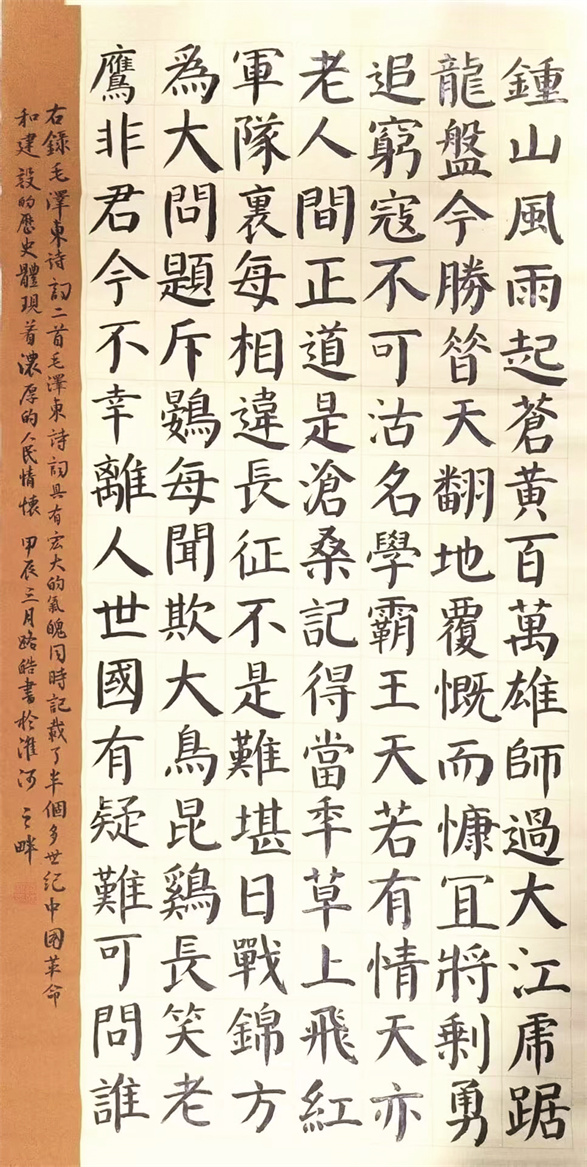 鍾山風雨起蒼黃百萬雄師過大江虎踞
龍盤今勝昔天翻地覆慨而慷冝將剩勇
追窮寇不可沽名學霸王天若有情天亦
老人間正道是滄桑記得當年草上飛紅
軍隊裏每相違長征不是難堪日戰錦方
爲大問題斥鷃每聞欺大鳥昆鷄長笑老
鷹非君今不幸離人世國有疑難可問誰
右錄毛澤東詩詞二首毛澤東詩詞具有宏大的氣魄同時記載了半個多世纪中國革命
和建設的歷史體現着濃厚的人民情懷 甲辰三月路皓書於淮河之畔